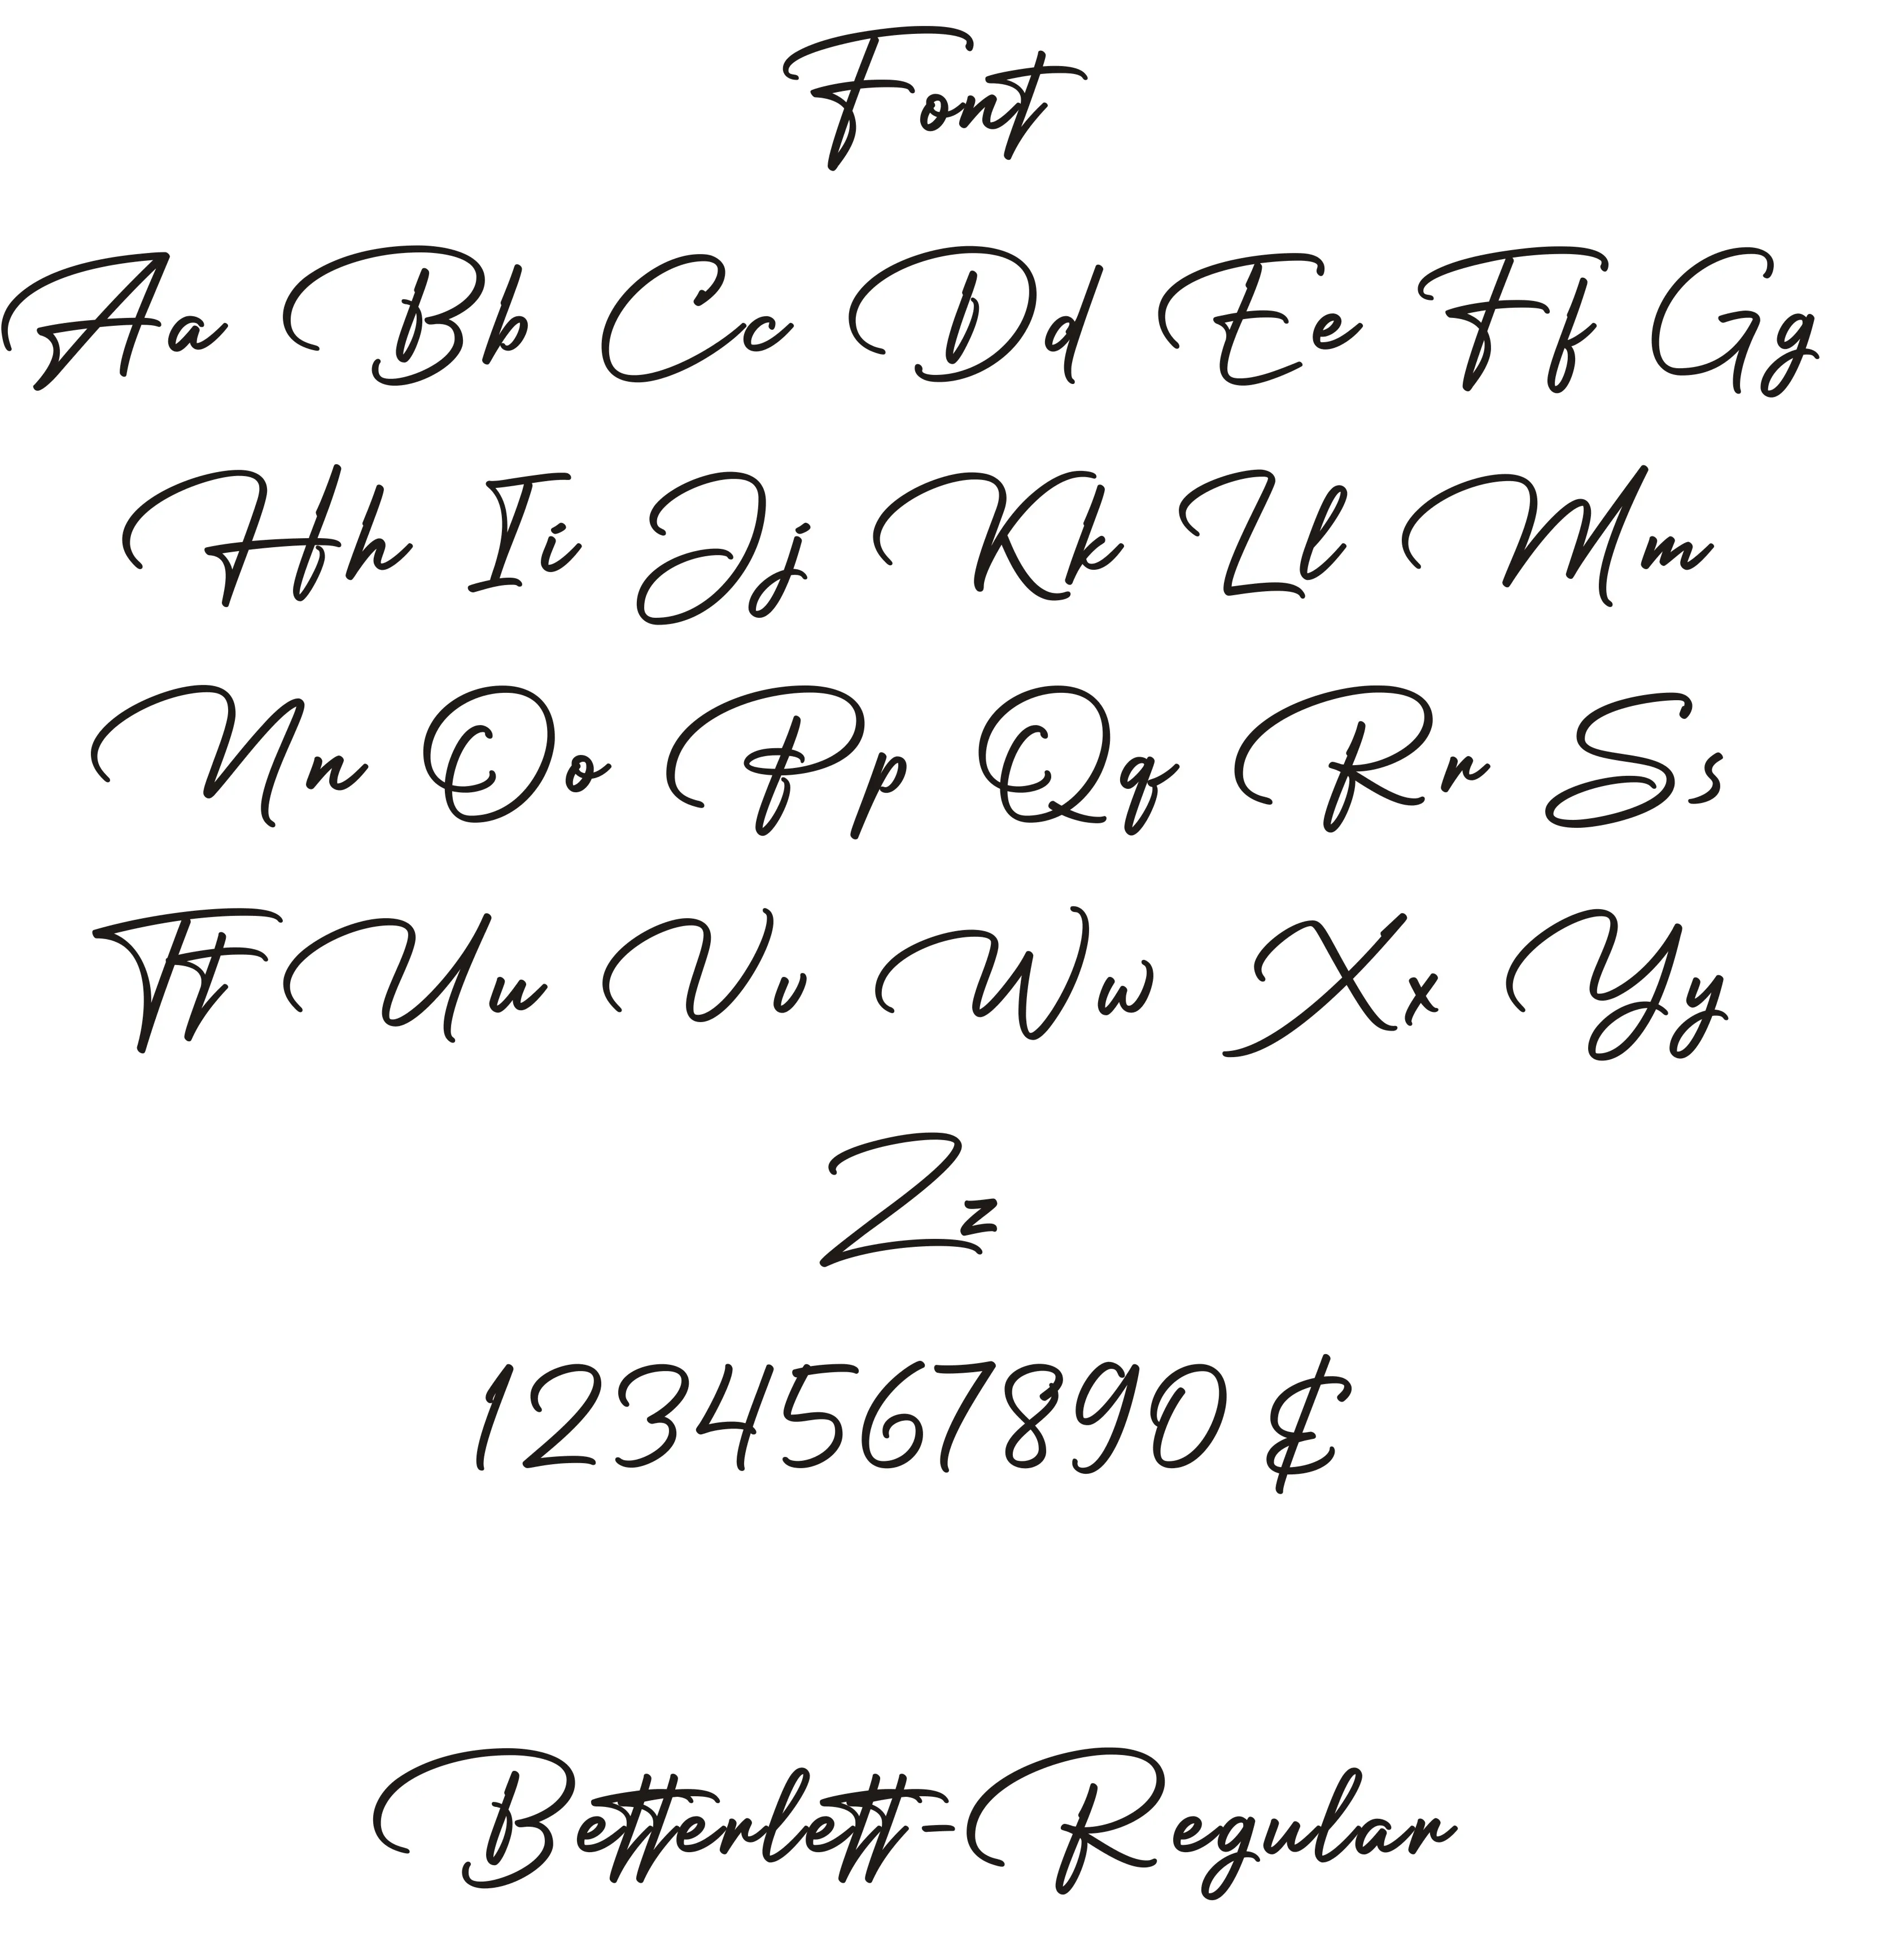 Font
Aa Bb Cc Dd Ee Ff Gg
Hh Ii Jj Kk Ll Mm
Nn Oo Pp Qq Rr Ss
Tt Uu Vv Ww Xx Yy
Zz
1234567890 $
Betterlett-Regular